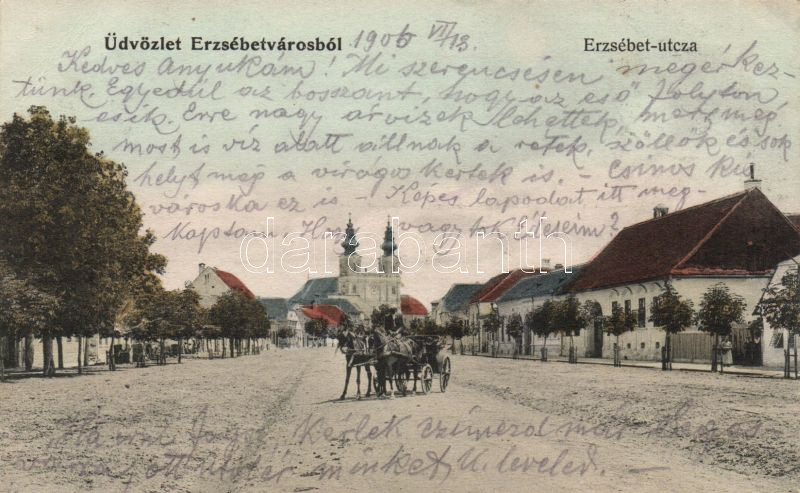 Üdvözlet Erzsébetvárosból 1906 VII/13.
Erzsébet-utcza
Kedves Anyukám! Mi szerencsésen megérkez-
tünk Egyedül az bosszant, hogy az eső folyton
esik. Erre nagy árvizek lehettek, mert még
most is víz alatt állnak a rétek, szőllők és sok
helyt még a virágos kertek is. - Csinos kis
városka ez is - Képes lapodat itt meg-
kaptam, Hogy vagytok Édeseim?
darabanth
Kérlek már
minket U. leveled. -